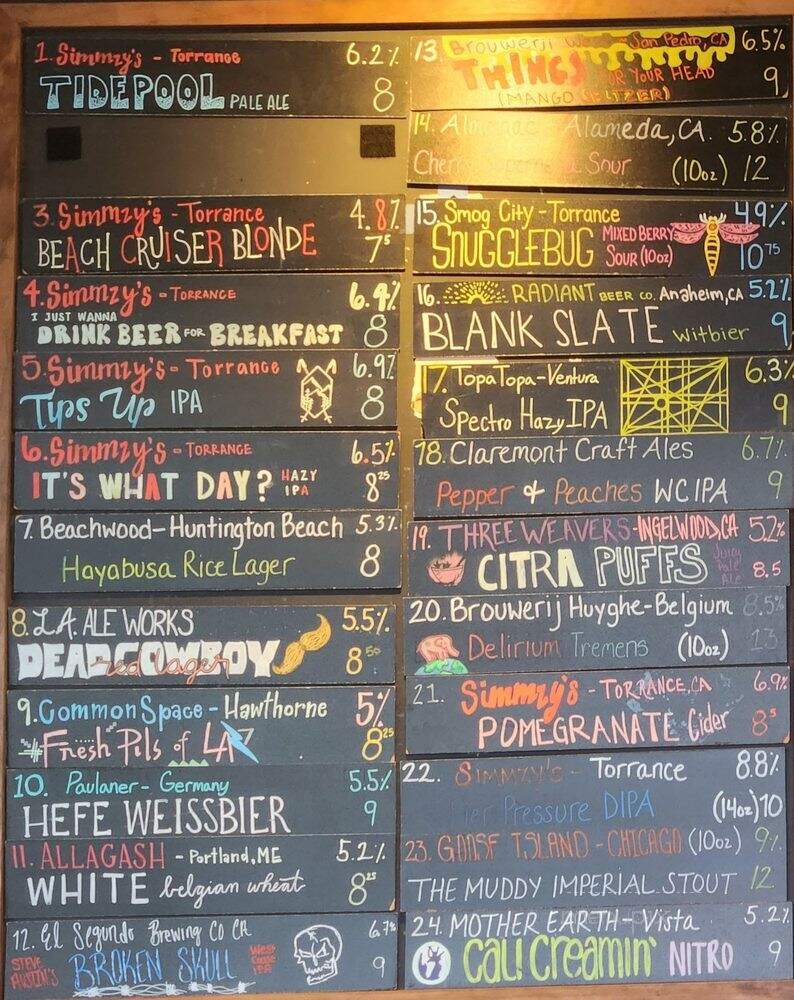 1. Simmzy's - Torrance 6.2%
TIDEPOOL PALE ALE 8
3. Simmzy's - Torrance 4.8%
BEACH CRUISER BLONDE 7⁵
4. Simmzy's - TORRANCE 6.4%
I JUST WANNA
DRINK BEER FOR BREAKFAST 8
5. Simmzy's - Torrance 6.9%
Tips Up IPA 8
6. Simmzy's - TORRANCE 6.5%
IT'S WHAT DAY? HAZY IPA 8²⁵
7. Beachwood - Huntington Beach 5.3%
Hayabusa Rice Lager 8
8. L.A. ALE WORKS 5.5%
DEADCOWBOY red lager 8⁵⁰
9. Common Space - Hawthorne 5%
#Fresh Pils of LA 8²⁵
10. Paulaner - Germany 5.5%
HEFE WEISSBIER 9
11. ALLAGASH - Portland, ME 5.2%
WHITE belgian wheat 8²⁵
12. El Segundo Brewing Co CA 6.7%
STEVE AUSTIN'S BROKEN SKULL West Coast IPA 9
13. Brouwerij San Pedro, CA 6.5%
THINGS FOR YOUR HEAD 9
(MANGO SELTZER)
14. Alameda, CA. 5.8%
Sour (10oz) 12
15. Smog City - Torrance 4.9%
SNUGGLEBUG MIXED BERRY SOUR (10oz) 10⁷⁵
16. RADIANT BEER CO. Anaheim, CA 5.2%
BLANK SLATE Witbier 9
17. Topa Topa - Ventura 6.3%
Spectro Hazy IPA 9
18. Claremont Craft Ales 6.7%
Pepper & Peaches WC IPA 9
19. THREE WEAVERS - INGELWOOD, CA 5.2%
CITRA PUFFS Juicy Pale Ale 8.5
20. Brouwerij Huyghe - Belgium 8.5%
Delirium Tremens (10oz) 13
21. Simmzy's - TORRANCE, CA 6.9%
POMEGRANATE Cider 8⁵
22. SIMMZY'S - Torrance 8.8%
Pressure DIPA (14oz) 10
23. GOOSE ISLAND - CHICAGO (10oz) 9%
THE MUDDY IMPERIAL STOUT 12
24. MOTHER EARTH - Vista 5.2%
CALI CREAMIN' NITRO 9